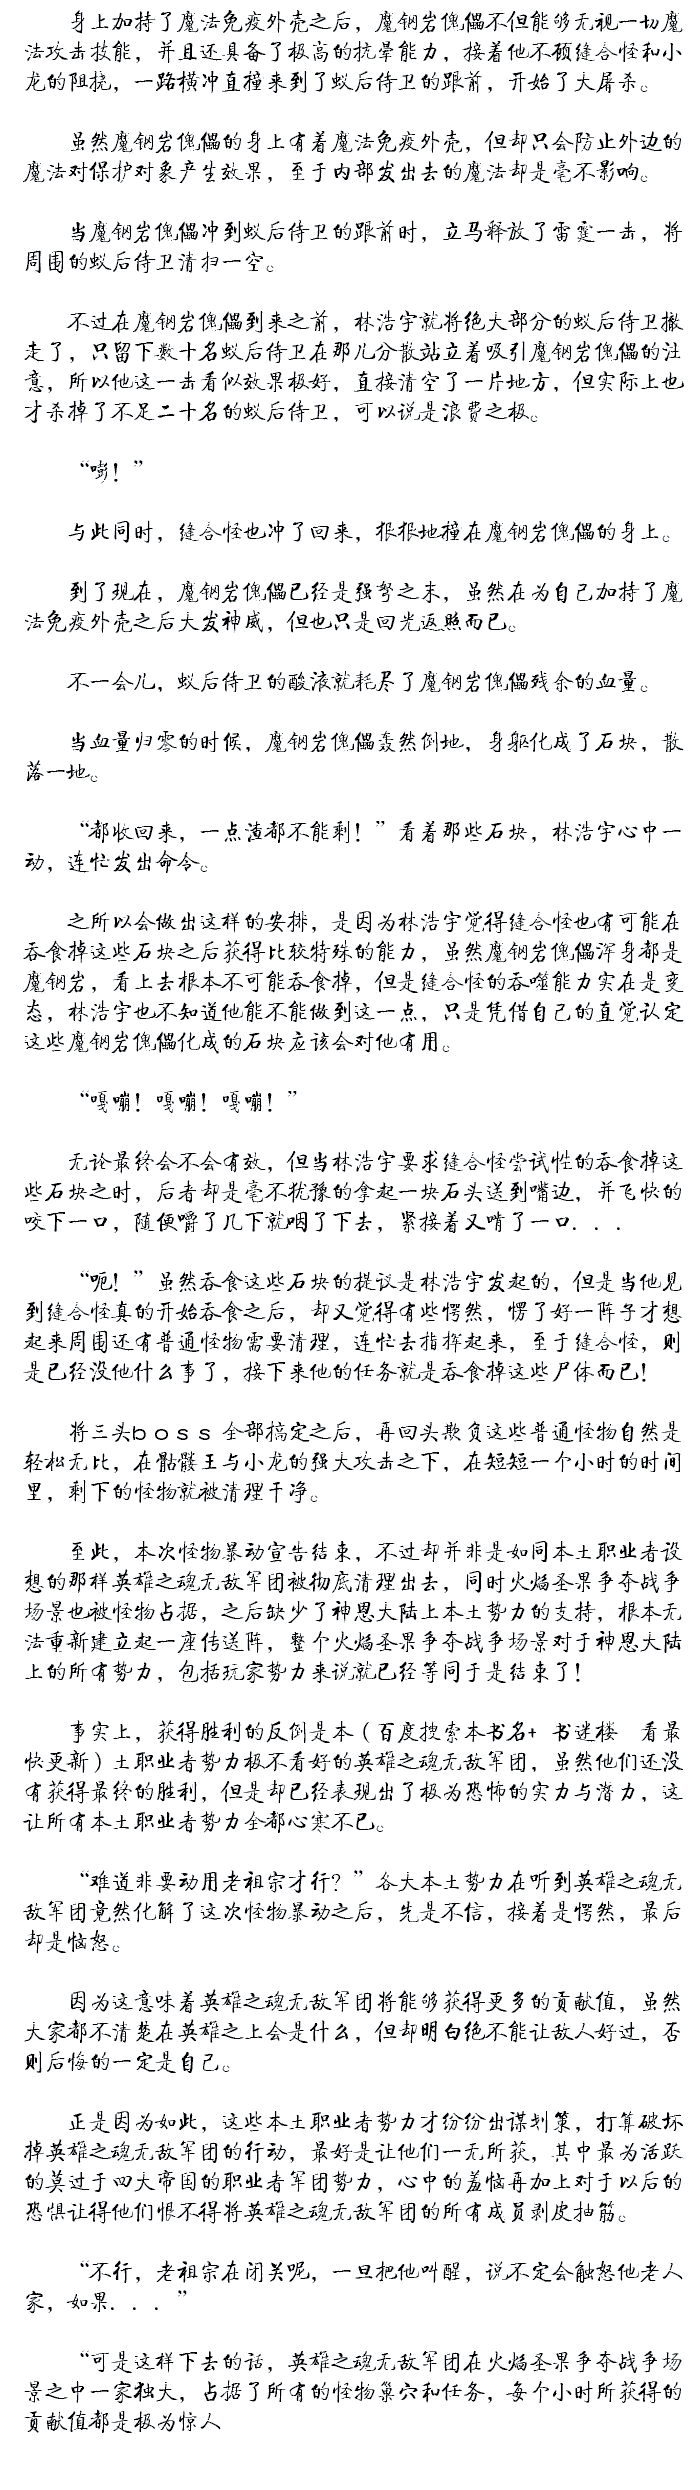 身上加持了魔法免疫外壳之后，魔钢岩傀儡不但能够无视一切魔
法攻击技能，并且还具备了极高的抗晕能力，接着他不顾缝合怪和小
龙的阻挠，一路横冲直撞来到了蚁后侍卫的跟前，开始了大屠杀。
虽然魔钢岩傀儡的身上有着魔法免疫外壳，但却只会防止外边的
魔法对保护对象产生效果，至于内部发出去的魔法却是毫不影响。
当魔钢岩傀儡冲到蚁后侍卫的跟前时，立马释放了雷霆一击，将
周围的蚁后侍卫清扫一空。
不过在魔钢岩傀儡到来之前，林浩宇就将绝大部分的蚁后侍卫撤
走了，只留下数十名蚁后侍卫在那儿分散站立着吸引魔钢岩傀儡的注
意，所以他这一击看似效果极好，直接清空了一片地方，但实际上也
才杀掉了不足二十名的蚁后侍卫，可以说是浪费之极。
“嘭！”
与此同时，缝合怪也冲了回来，狠狠地撞在魔钢岩傀儡的身上。
到了现在，魔钢岩傀儡已经是强弩之末，虽然在为自己加持了魔
法免疫外壳之后大发神威，但也只是回光返照而已。
不一会儿，蚁后侍卫的酸液就耗尽了魔钢岩傀儡残余的血量。
当血量归零的时候，魔钢岩傀儡轰然倒地，身躯化成了石块，散
落一地。
“都收回来，一点渣都不能剩！”看着那些石块，林浩宇心中一
动，连忙发出命令。
之所以会做出这样的安排，是因为林浩宇觉得缝合怪也有可能在
吞食掉这些石块之后获得比较特殊的能力，虽然魔钢岩傀儡浑身都是
魔钢岩，看上去根本不可能吞食掉，但是缝合怪的吞噬能力实在是变
态，林浩宇也不知道他能不能做到这一点，只是凭借自己的直觉认定
这些魔钢岩傀儡化成的石块应该会对他有用。
“嘎嘣！嘎嘣！嘎嘣！”
无论最终会不会有效，但当林浩宇要求缝合怪尝试性的吞食掉这
些石块之时，后者却是毫不犹豫的拿起一块石头送到嘴边，并飞快的
咬下一口，随便嚼了几下就咽了下去，紧接着又啃了一口．．．
“呃！”虽然吞食这些石块的提议是林浩宇发起的，但是当他见
到缝合怪真的开始吞食之后，却又觉得有些愕然，愣了好一阵子才想
起来周围还有普通怪物需要清理，连忙去指挥起来，至于缝合怪，则
是已经没他什么事了，接下来他的任务就是吞食掉这些尸体而已！
将三头ｂｏｓｓ全部搞定之后，再回头欺负这些普通怪物自然是
轻松无比，在骷髅王与小龙的强大攻击之下，在短短一个小时的时间
里，剩下的怪物就被清理干净。
至此，本次怪物暴动宣告结束，不过却并非是如同本土职业者设
想的那样英雄之魂无敌军团被彻底清理出去，同时火焰圣果争夺战争
场景也被怪物占据，之后缺少了神恩大陆上本土势力的支持，根本无
法重新建立起一座传送阵，整个火焰圣果争夺战争场景对于神恩大陆
上的所有势力，包括玩家势力来说就已经等同于是结束了！
事实上，获得胜利的反倒是本（百度搜索本书名+ 书迷楼 看最
快更新）土职业者势力极不看好的英雄之魂无敌军团，虽然他们还没
有获得最终的胜利，但是却已经表现出了极为恐怖的实力与潜力，这
让所有本土职业者势力全都心寒不已。
“难道非要动用老祖宗才行？”各大本土势力在听到英雄之魂无
敌军团竟然化解了这次怪物暴动之后，先是不信，接着是愕然，最后
却是恼怒。
因为这意味着英雄之魂无敌军团将能够获得更多的贡献值，虽然
大家都不清楚在英雄之上会是什么，但却明白绝不能让敌人好过，否
则后悔的一定是自己。
正是因为如此，这些本土职业者势力才纷纷出谋划策，打算破坏
掉英雄之魂无敌军团的行动，最好是让他们一无所获，其中最为活跃
的莫过于四大帝国的职业者军团势力，心中的羞恼再加上对于以后的
恐惧让得他们恨不得将英雄之魂无敌军团的所有成员剥皮抽筋。
“不行，老祖宗在闭关呢，一旦把他叫醒，说不定会触怒他老人
家，如果．．．”
“可是这样下去的话，英雄之魂无敌军团在火焰圣果争夺战争场
景之中一家独大，占据了所有的怪物巢穴和任务，每个小时所获得的
贡献值都是极为惊人